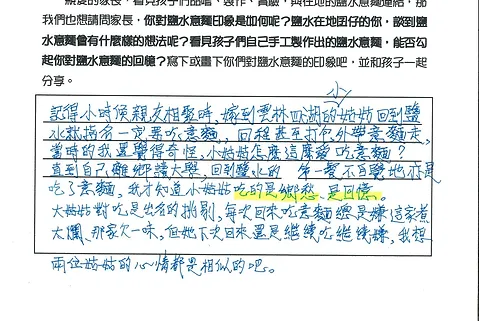 我們也想請問家長,你對鹽水意麵印象是如何呢?鹽水在地囝仔的你,談到鹽
水意麵會有什麼樣的想法呢?看見孩子們自己手工製作出的鹽水意麵,能否勾
起你對鹽水意麵的回憶?寫下或畫下你們對鹽水意麵的印象吧,並和孩子一起
分享。
小
記得小時候親友相聚時,嫁到雲林口湖的姑姑回到鹽
水就指名一定要吃意麵,回程甚至打包外帶意麵走,
當時的我還覺得奇怪,小姑姑怎麼這麼愛吃意麵?
直到自己離鄉讀大學,回到鹽水的 第一餐不自覺地亦是
吃了意麵,我才知道小姑姑吃的是鄉愁、是回憶。
大姑姑對吃是出名的挑剔,每次回來吃意麵總是嫌這家煮
太爛、那家欠一味,但她下次回來還是繼續吃繼續嫌,我想
兩位姑姑的心情都是相似的吧。